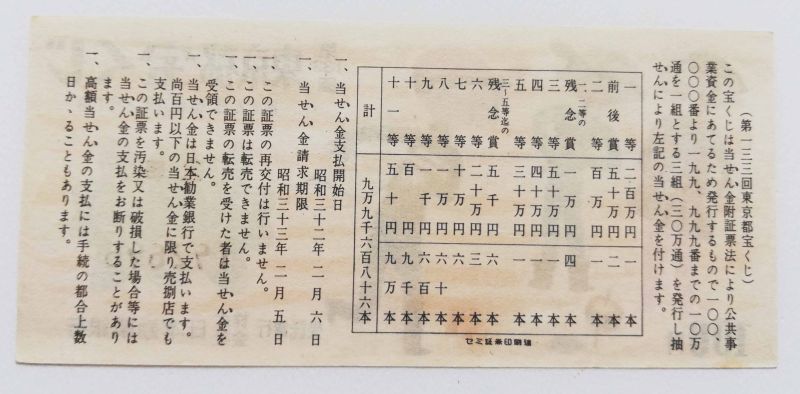 （第一三三回東京都宝くじ）
この宝くじは当せん金附証票法により公共事
業資金にあてるため発行するもので一〇〇、
〇〇〇番より一九九、九九九番までの一〇万
通を一組とする三組（三〇万通）を発行し抽
せんにより左記の当せん金を付けます。
一等 二百万円 一本
前後賞 五十万円 二本
二等 百万円 一本
一、二等の残念賞 一万円 四本
三等 五十万円 一本
四等 四十万円 一本
五等 三十万円 一本
三ー五等迄の残念賞 五千円 六本
六等 二十万円 三本
七等 十万円 六本
八等 一万円 六十本
九等 一千円 六百本
十等 百円 九千本
十一等 五十円 九万本
計 九万九千六百八十六本
一、当せん金支払開始日
昭和三十二年二月六日
一、当せん金請求期限
昭和三十三年二月五日
一、この証票の再交付は行いません。
一、この証票は転売できません。
一、この証票の転売を受けた者は当せん金を
受領できません。
一、当せん金は日本勧業銀行で支払います。
尚百円以下の当せん金に限り売捌店でも
支払います。
一、この証票を汚染又は破損した場合等には
当せん金の支払をお断りすることがあり
ます。
一、高額当せん金の支払には手続の都合上数
日かゝることもあります。